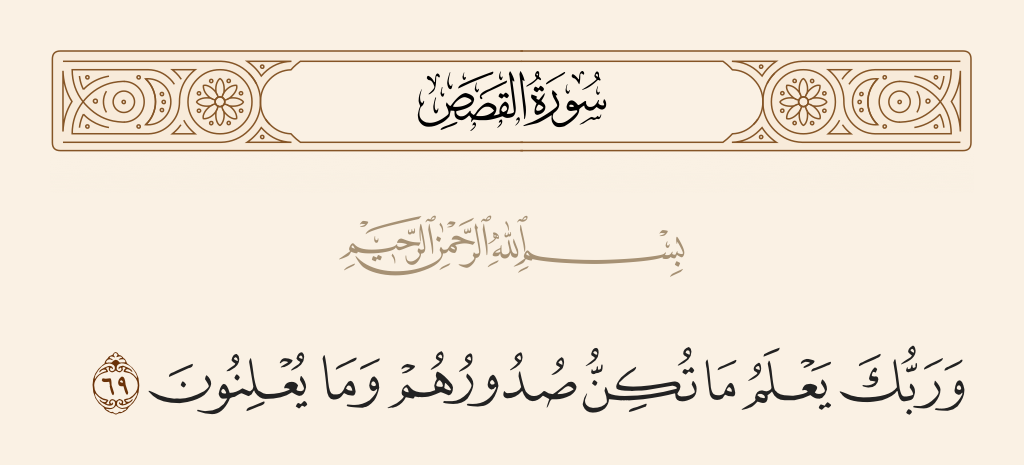 سُورَةُ القَصَصِ
بِسْمِ ٱللَّهِ ٱلرَّحْمَٰنِ ٱلرَّحِيمِ
وَرَبُّكَ يَعْلَمُ مَا تُكِنُّ صُدُورُهُمْ وَمَا يُعْلِنُونَ ٦٩